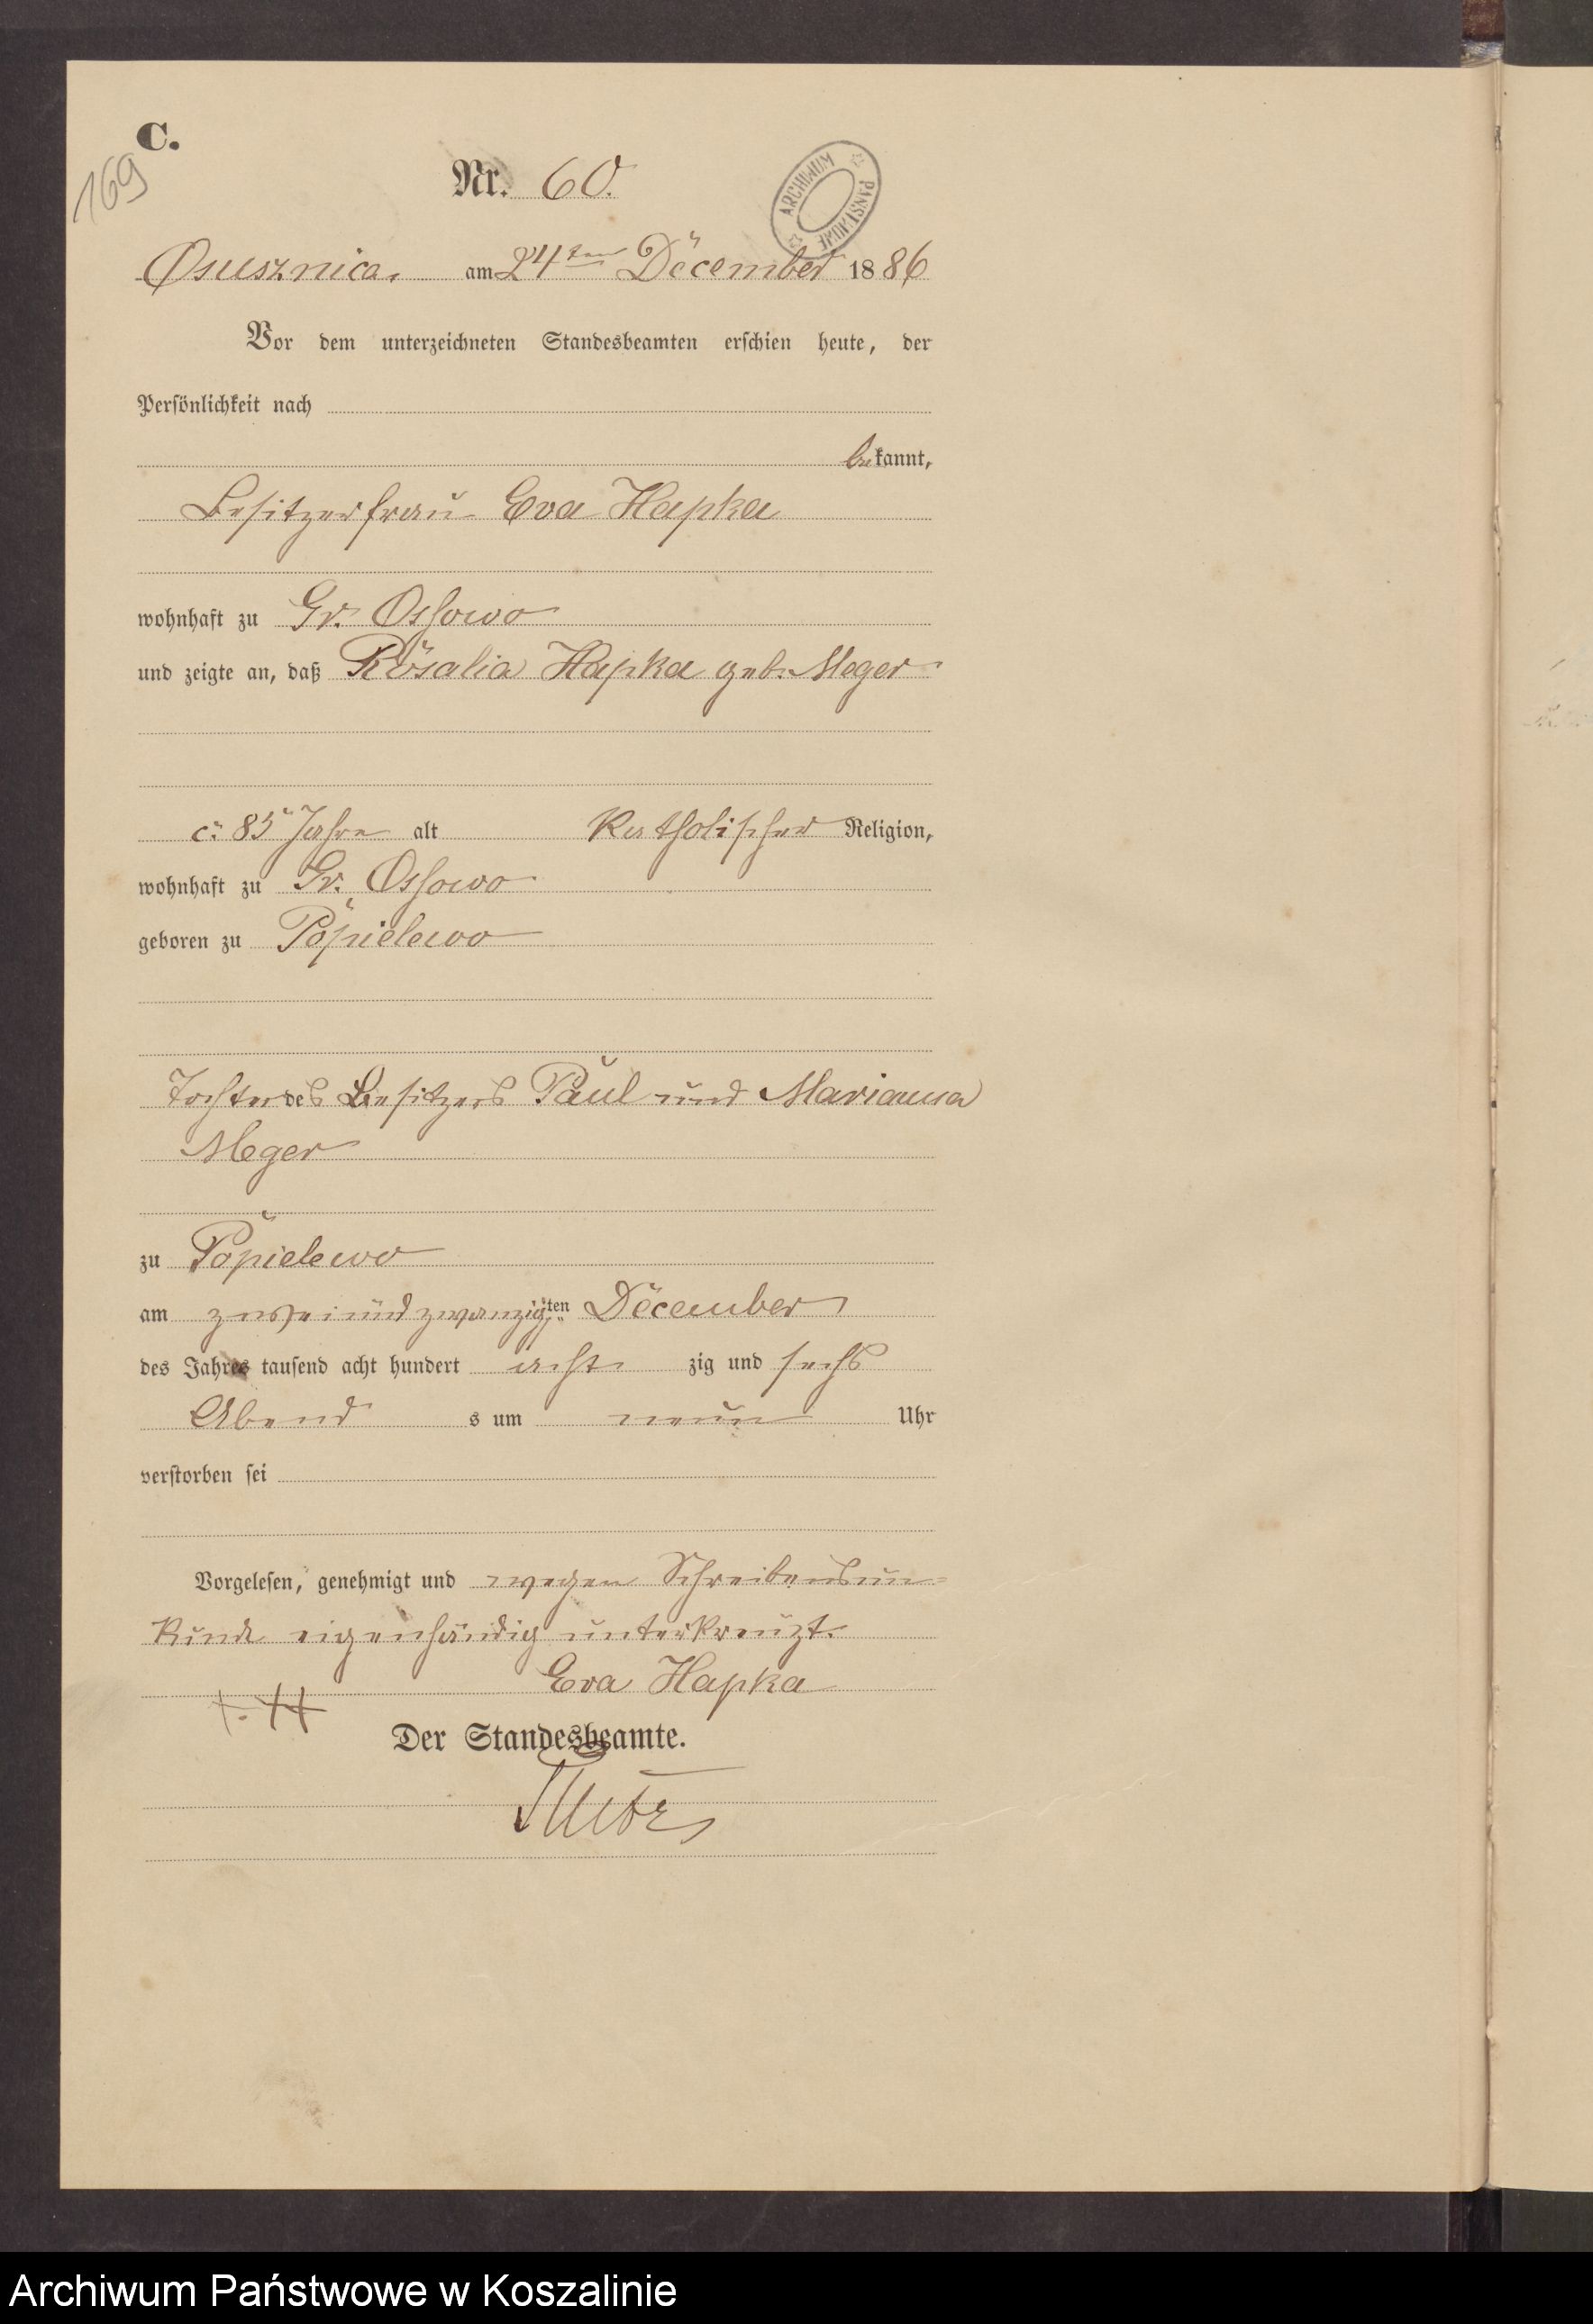 C.
169
Nr. 60.
ARCHIWUM PAŃSTWOWE
Osusznica, am 24ten December 1886
Vor dem unterzeichneten Standesbeamten erschien heute, der
Persönlichkeit nach
bekannt,
Besitzerfrau Eva Hapka
wohnhaft zu Gr. Ossowo
und zeigte an, daß Rosalia Hapka geb. Meger
c. 85 Jahre alt Katholischer Religion,
wohnhaft zu Gr. Ossowo
geboren zu Popielewo
Tochter des Besitzers Paul und Marianna
Meger
zu Popielewo
am zweiundzwanzigsten December
des Jahres tausend acht hundert acht zig und sechs
Abend s um neun Uhr
verstorben sei
Vorgelesen, genehmigt und wegen Schreibensun-
kunde eigenhändig unterkreuzt.
Eva Hapka
+. ++
Der Standesbeamte.
Archiwum Państwowe w Koszalinie